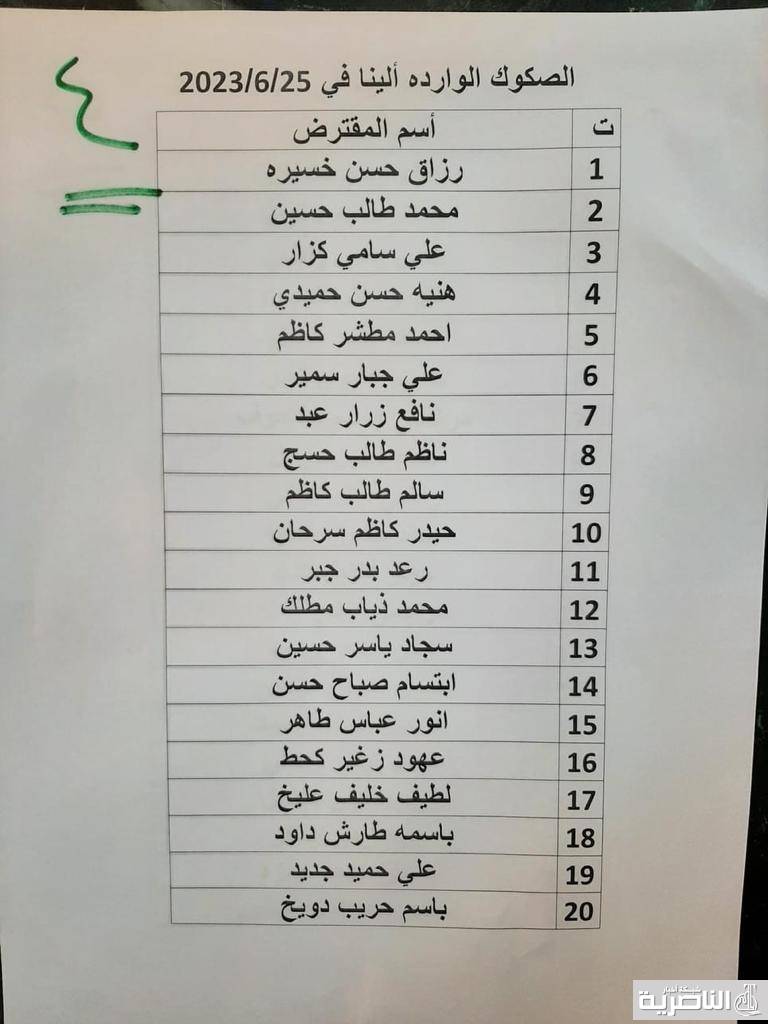 ٤
الصكوك الوارده ألينا في 2023/6/25
ت أسم المقترض
1 رزاق حسن خسيره
2 محمد طالب حسين
3 علي سامي كزار
4 هنيه حسن حميدي
5 احمد مطشر كاظم
6 علي جبار سمير
7 نافع زرار عبد
8 ناظم طالب حسج
9 سالم طالب كاظم
10 حيدر كاظم سرحان
11 رعد بدر جبر
12 محمد ذياب مطلك
13 سجاد ياسر حسين
14 ابتسام صباح حسن
15 انور عباس طاهر
16 عهود زغير كحط
17 لطيف خليف عليخ
18 باسمه طارش داود
19 علي حميد جديد
20 باسم حريب دويخ
شبكة أخبار
الناصرية